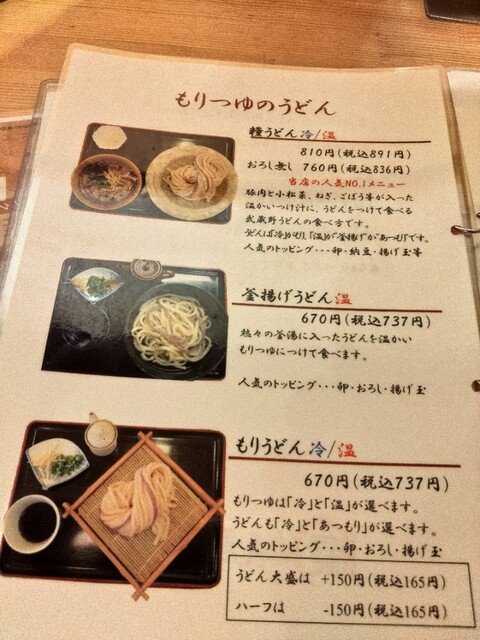 もりつゆのうどん
糧うどん 冷/温
810円(税込891円)
おろし無し 760円(税込836円)
当店の人気NO.1メニュー
豚肉と小松菜、ねぎ、ごぼう等が入った
温かいつけ汁に、うどんをつけて食べる
武蔵野うどんの食べ方です。
うどんは「冷」がもり、「温」が"釜揚げ"か"あつもり"です。
人気のトッピング・・・卵・納豆・揚げ玉等
釜揚げうどん 温
670円(税込737円)
熱々の釜湯に入ったうどんを温かい
もりつゆにつけて食べます。
人気のトッピング・・・卵・おろし・揚げ玉
もりうどん 冷/温
670円(税込737円)
もりつゆは「冷」と「温」が選べます。
うどんも「冷」と「あつもり」が選べます。
人気のトッピング・・・卵・おろし・揚げ玉
うどん大盛は +150円(税込165円)
ハーフは -150円(税込165円)